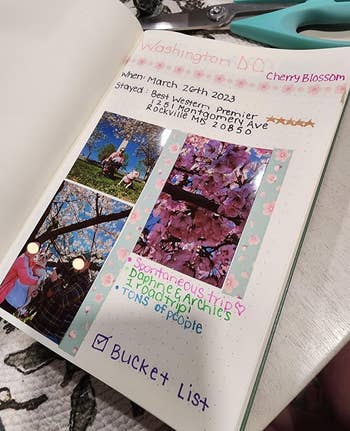 Washington D.C.
Cherry Blossom
When: March 26th 2023
Stayed: Best Western Premier
1251 Montgomery Ave
Rockville MD 20850
• Spontaneous trip ♡
• Daphne & Archie's
1st roadtrip!
• TONS of people
☑ Bucket List